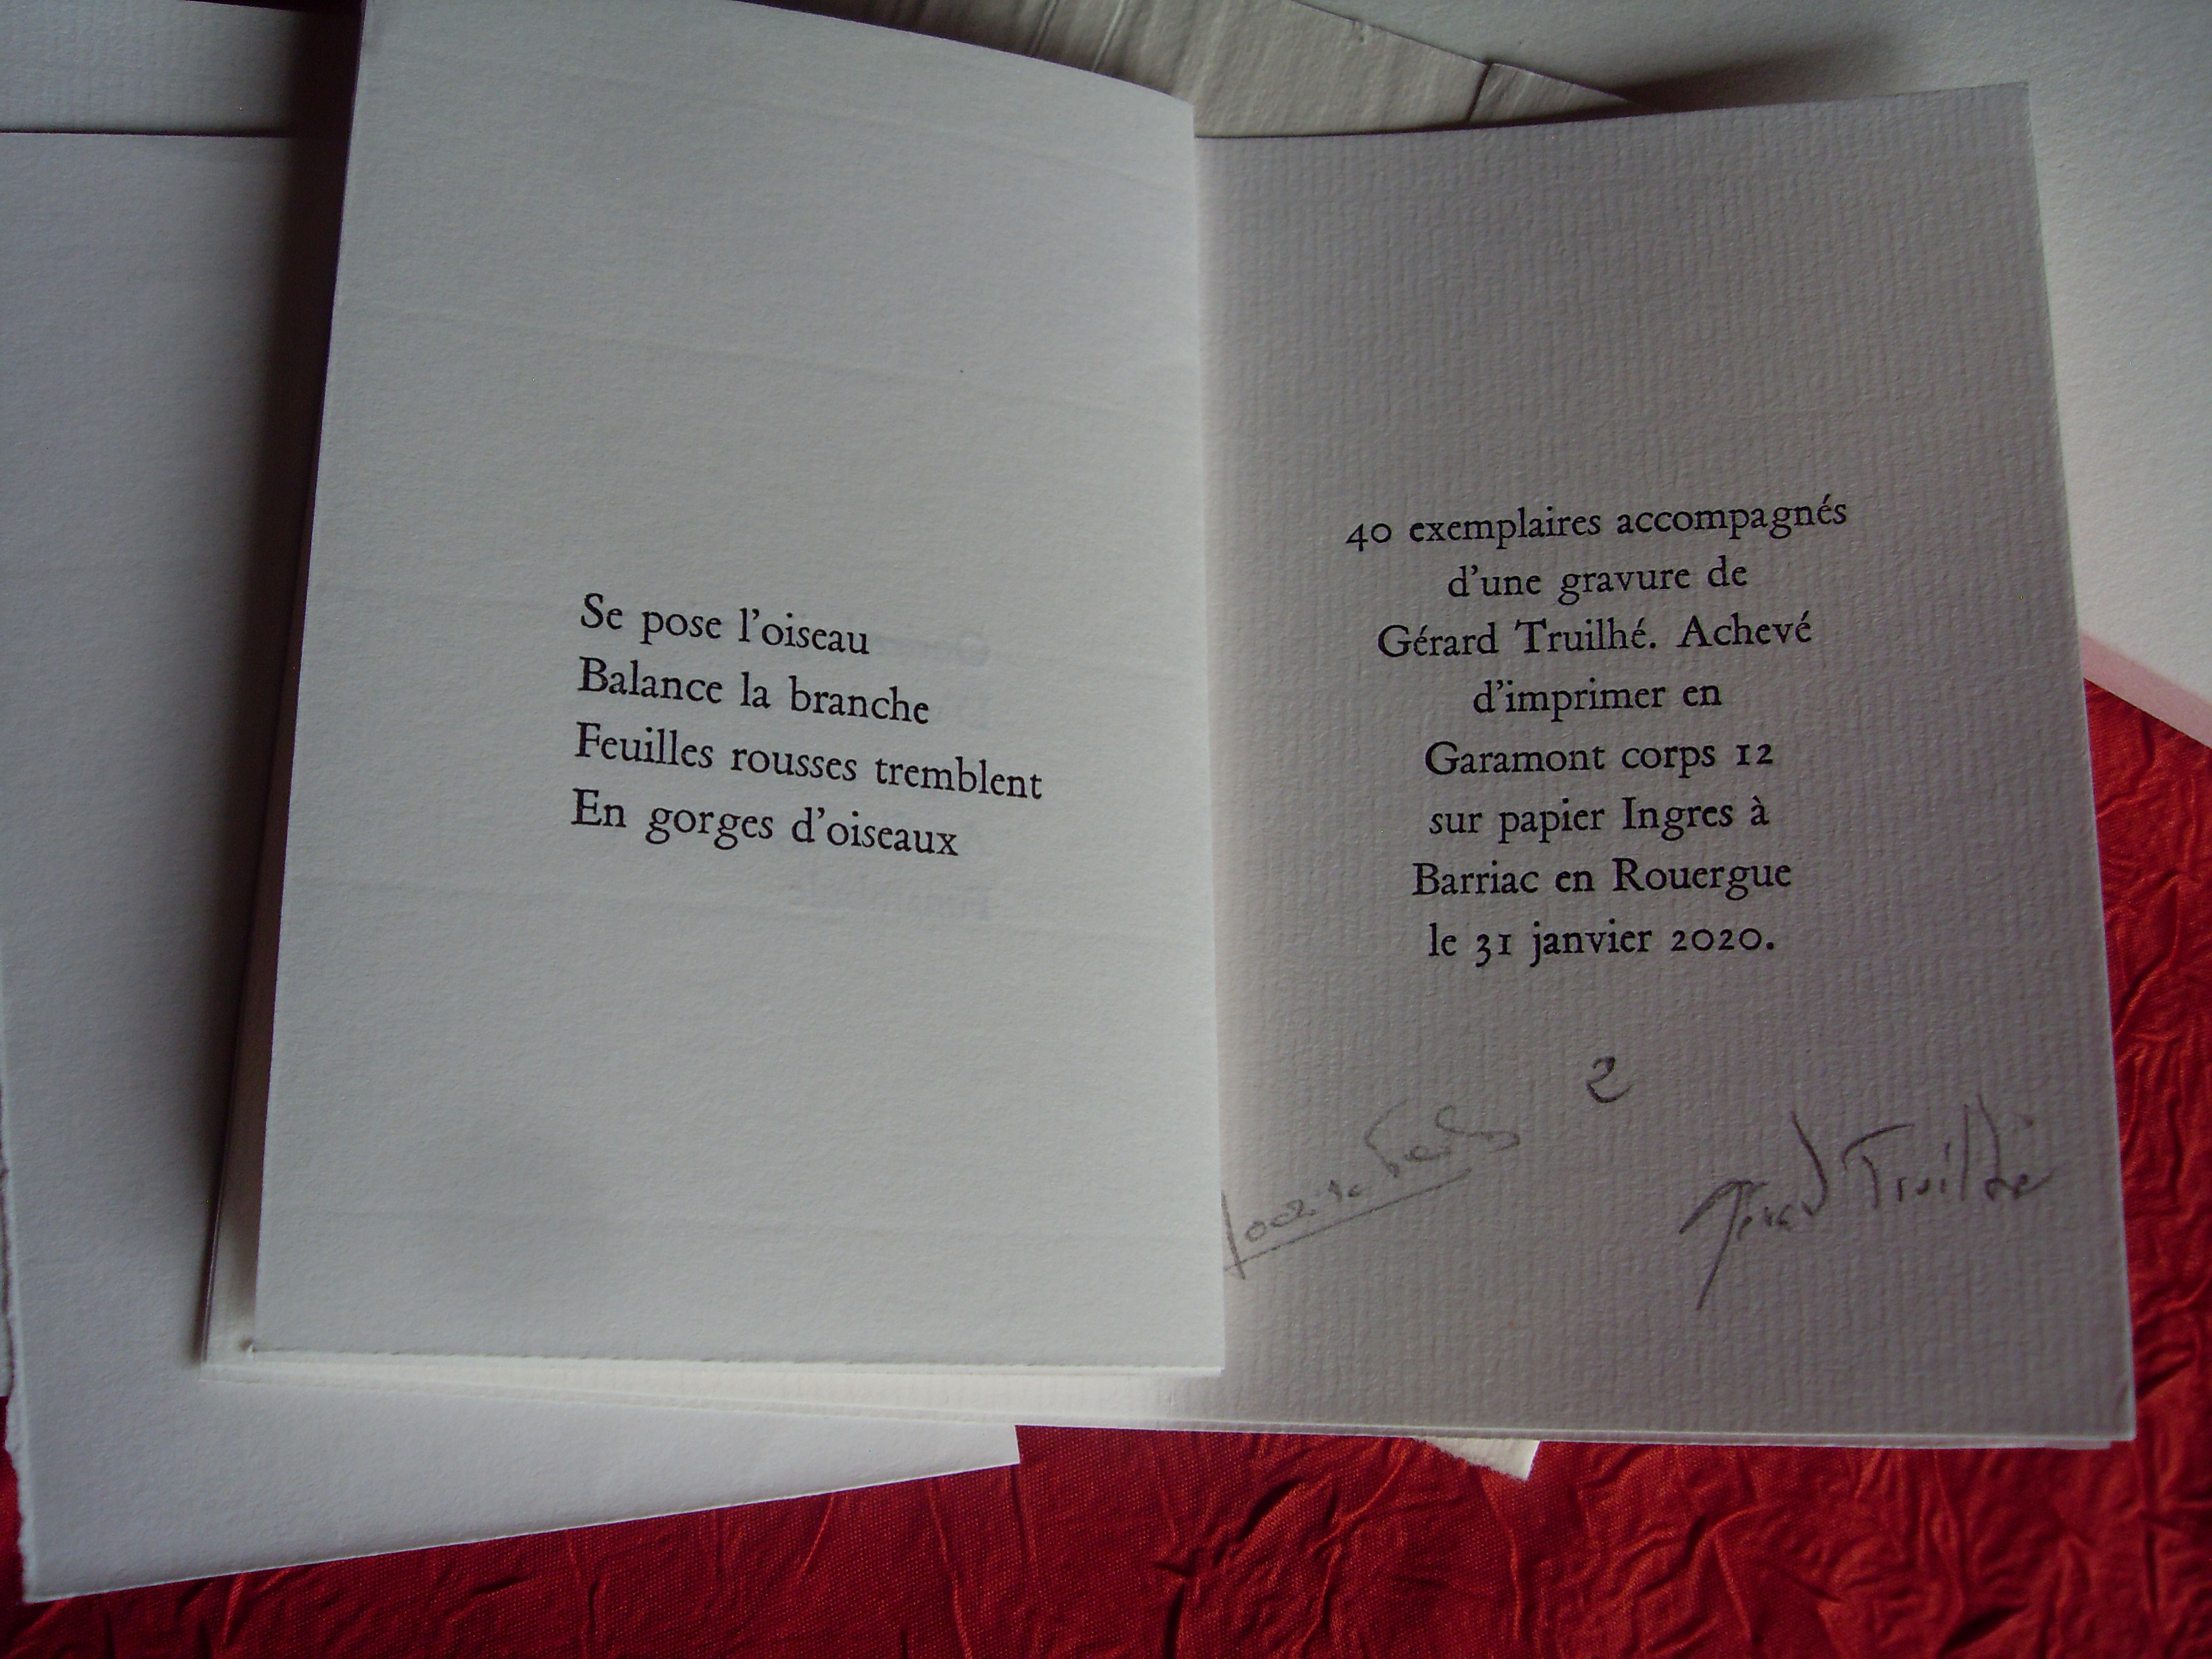 Se pose l'oiseau
Balance la branche
Feuilles rousses tremblent
En gorges d'oiseaux
40 exemplaires accompagnés
d'une gravure de
Gérard Truilhé. Achevé
d'imprimer en
Garamont corps 12
sur papier Ingres à
Barriac en Rouergue
le 31 janvier 2020.
2
Gérard Truilhé